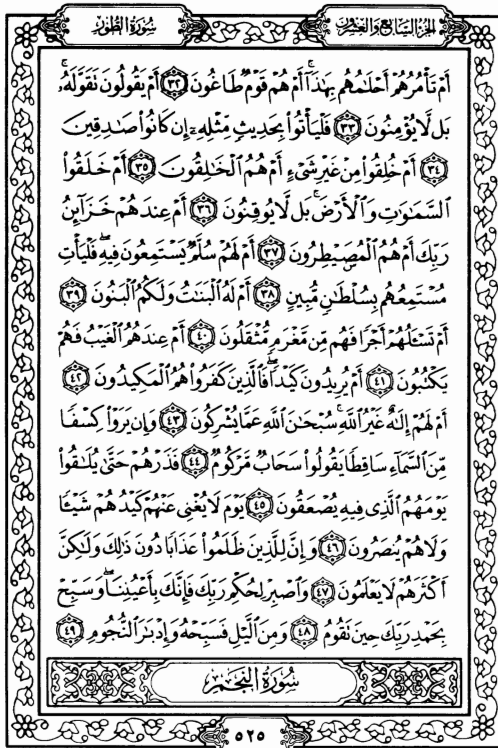 سُورَةُ الطُّورِ
الجُزْءُ السَّابِعُ وَالعِشْرُونَ
أَمْ تَأْمُرُهُمْ أَحْلَٰمُهُم بِهَٰذَآ ۚ أَمْ هُمْ قَوْمٌ طَاغُونَ ٣٢ أَمْ يَقُولُونَ تَقَوَّلَهُۥ ۚ
بَل لَّا يُؤْمِنُونَ ٣٣ فَلْيَأْتُوا۟ بِحَدِيثٍ مِّثْلِهِۦٓ إِن كَانُوا۟ صَٰدِقِينَ
٣٤ أَمْ خُلِقُوا۟ مِنْ غَيْرِ شَىْءٍ أَمْ هُمُ ٱلْخَٰلِقُونَ ٣٥ أَمْ خَلَقُوا۟
ٱلسَّمَٰوَٰتِ وَٱلْأَرْضَ ۚ بَل لَّا يُوقِنُونَ ٣٦ أَمْ عِندَهُمْ خَزَآئِنُ
رَبِّكَ أَمْ هُمُ ٱلْمُصَۣيْطِرُونَ ٣٧ أَمْ لَهُمْ سُلَّمٌ يَسْتَمِعُونَ فِيهِ ۖ فَلْيَأْتِ
مُسْتَمِعُهُم بِسُلْطَٰنٍ مُّبِينٍ ٣٨ أَمْ لَهُ ٱلْبَنَٰتُ وَلَكُمُ ٱلْبَنُونَ ٣٩
أَمْ تَسْـَٔلُهُمْ أَجْرًا فَهُم مِّن مَّغْرَمٍ مُّثْقَلُونَ ٤٠ أَمْ عِندَهُمُ ٱلْغَيْبُ فَهُمْ
يَكْتُبُونَ ٤١ أَمْ يُرِيدُونَ كَيْدًا ۖ فَٱلَّذِينَ كَفَرُوا۟ هُمُ ٱلْمَكِيدُونَ ٤٢
أَمْ لَهُمْ إِلَٰهٌ غَيْرُ ٱللَّهِ ۚ سُبْحَٰنَ ٱللَّهِ عَمَّا يُشْرِكُونَ ٤٣ وَإِن يَرَوْا۟ كِسْفًا
مِّنَ ٱلسَّمَآءِ سَاقِطًا يَقُولُوا۟ سَحَابٌ مَّرْكُومٌ ٤٤ فَذَرْهُمْ حَتَّىٰ يُلَٰقُوا۟
يَوْمَهُمُ ٱلَّذِى فِيهِ يُصْعَقُونَ ٤٥ يَوْمَ لَا يُغْنِى عَنْهُمْ كَيْدُهُمْ شَيْـًٔا
وَلَا هُمْ يُنصَرُونَ ٤٦ وَإِنَّ لِلَّذِينَ ظَلَمُوا۟ عَذَابًا دُونَ ذَٰلِكَ وَلَٰكِنَّ
أَكْثَرَهُمْ لَا يَعْلَمُونَ ٤٧ وَٱصْبِرْ لِحُكْمِ رَبِّكَ فَإِنَّكَ بِأَعْيُنِنَا ۖ وَسَبِّحْ
بِحَمْدِ رَبِّكَ حِينَ تَقُومُ ٤٨ وَمِنَ ٱلَّيْلِ فَسَبِّحْهُ وَإِدْبَٰرَ ٱلنُّجُومِ ٤٩
سُورَةُ النَّجْمِ
٥٢٥